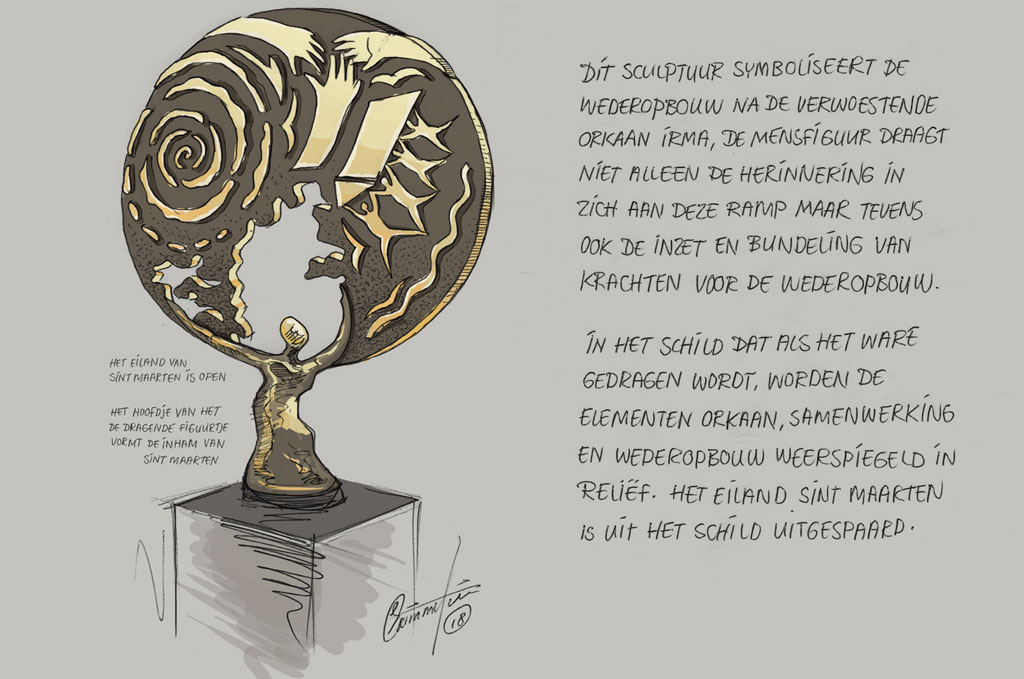 HET EILAND VAN
SINT MAARTEN IS OPEN
HET HOOFDJE VAN HET
DE DRAGENDE FIGUURTJE
VORMT DE INHAM VAN
SINT MAARTEN
DIT SCULPTUUR SYMBOLISEERT DE
WEDEROPBOUW NA DE VERWOESTENDE
ORKAAN IRMA, DE MENSFIGUUR DRAAGT
NIET ALLEEN DE HERINNERING IN
ZICH AAN DEZE RAMP MAAR TEVENS
OOK DE INZET EN BUNDELING VAN
KRACHTEN VOOR DE WEDEROPBOUW.
IN HET SCHILD DAT ALS HET WARE
GEDRAGEN WORDT, WORDEN DE
ELEMENTEN ORKAAN, SAMENWERKING
EN WEDEROPBOUW WEERSPIEGELD IN
RELIËF. HET EILAND SINT MAARTEN
IS UIT HET SCHILD UITGESPAARD.
18